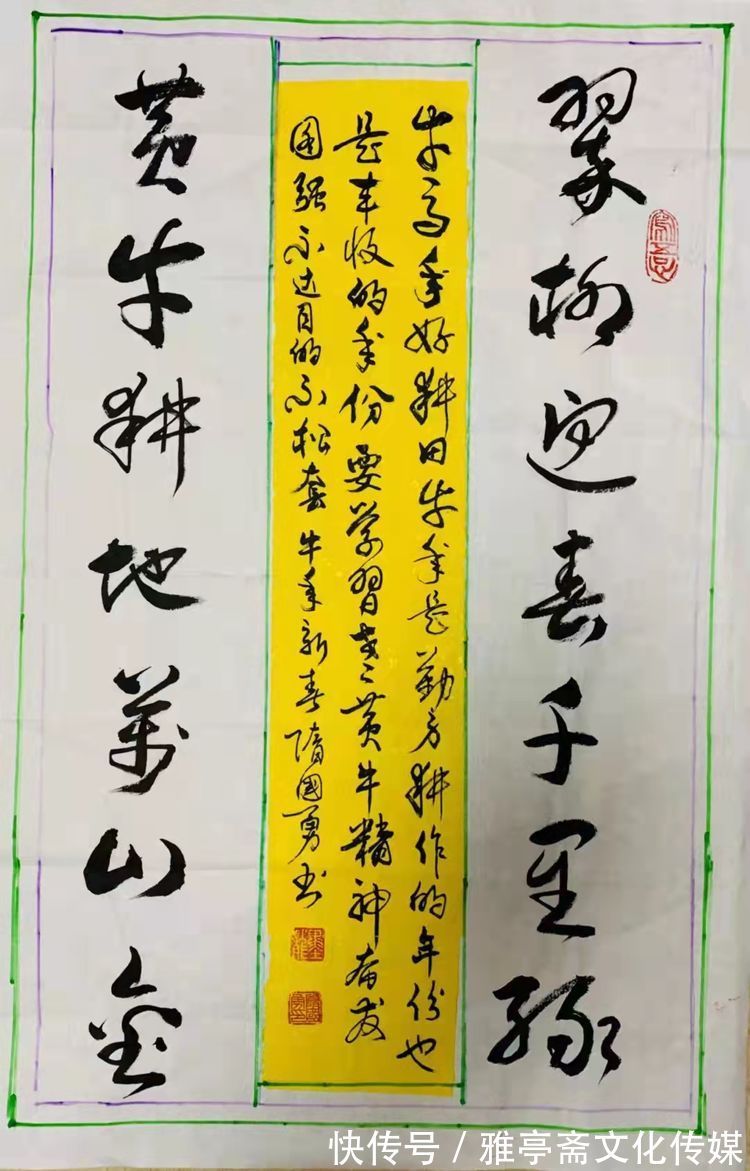 翠柳迎春千里绿
牛马年好耕田牛年是勤劳耕作的年份也
是丰收的年份要学习老黄牛精神奋发
图强不达目的不松套牛年新春隋国勇书
黄牛耕地万山金
快传号 / 雅亭斋文化传媒